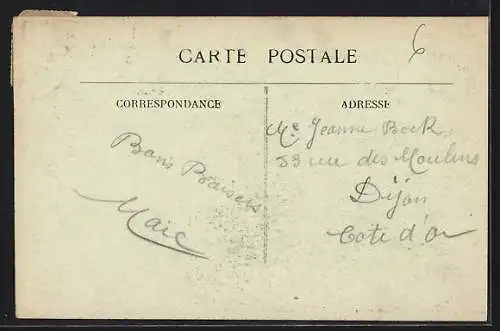 6
CARTE POSTALE
CORRESPONDANCE
ADRESSE
Bons Baisers
Me Jeanne Bock
33 rue des Moulins
Dijon
Cote d'Or